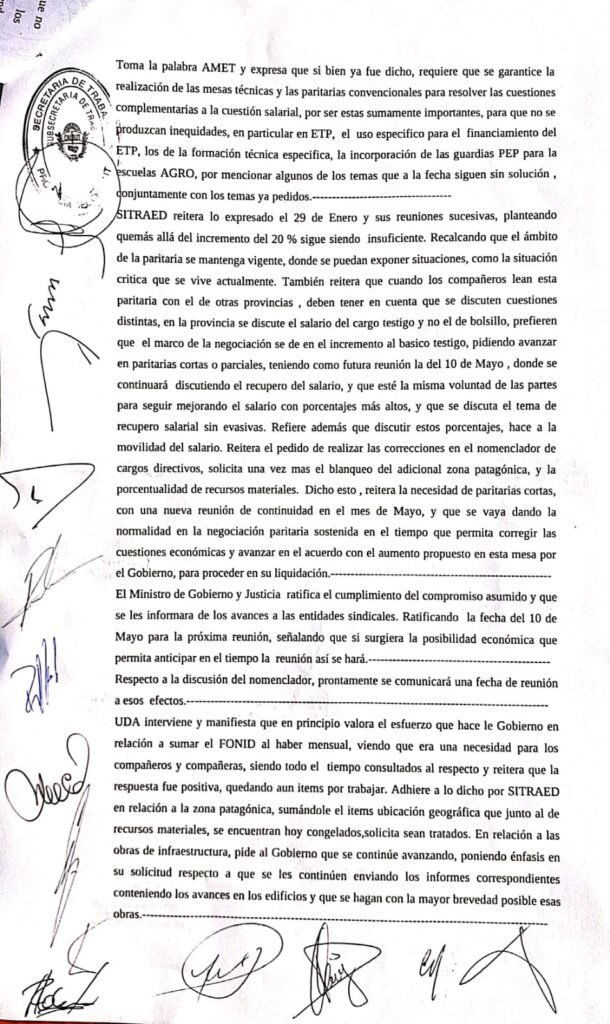 que no
los
SECRETARIA DE TRABA
SUBSECRETARIA DE TRA
Toma la palabra AMET y expresa que si bien ya fue dicho, requiere que se garantice la
realización de las mesas técnicas y las paritarias convencionales para resolver las cuestiones
complementarias a la cuestión salarial, por ser estas sumamente importantes, para que no se
produzcan inequidades, en particular en ETP, el uso especifico para el financiamiento del
ETP, los de la formación técnica especifica, la incorporación de las guardias PEP para la
escuelas AGRO, por mencionar algunos de los temas que a la fecha siguen sin solución ,
conjuntamente con los temas ya pedidos.-----------------------------------
SITRAED reitera lo expresado el 29 de Enero y sus reuniones sucesivas, planteando
quemás allá del incremento del 20 % sigue siendo insuficiente. Recalcando que el ámbito
de la paritaria se mantenga vigente, donde se puedan exponer situaciones, como la situación
critica que se vive actualmente. También reitera que cuando los compañeros lean esta
paritaria con el de otras provincias , deben tener en cuenta que se discuten cuestiones
distintas, en la provincia se discute el salario del cargo testigo y no el de bolsillo, prefieren
que el marco de la negociación se de en el incremento al basico testigo, pidiendo avanzar
en paritarias cortas o parciales, teniendo como futura reunión la del 10 de Mayo , donde se
continuará discutiendo el recupero del salario, y que esté la misma voluntad de las partes
para seguir mejorando el salario con porcentajes más altos, y que se discuta el tema de
recupero salarial sin evasivas. Refiere además que discutir estos porcentajes, hace a la
movilidad del salario. Reitera el pedido de realizar las correcciones en el nomenclador de
cargos directivos, solicita una vez mas el blanqueo del adicional zona patagónica, y la
porcentualidad de recursos materiales. Dicho esto , reitera la necesidad de paritarias cortas,
con una nueva reunión de continuidad en el mes de Mayo, y que se vaya dando la
normalidad en la negociación paritaria sostenida en el tiempo que permita corregir las
cuestiones económicas y avanzar en el acuerdo con el aumento propuesto en esta mesa por
el Gobierno, para proceder en su liquidación.-----------------------------------------------------
El Ministro de Gobierno y Justicia ratifica el cumplimiento del compromiso asumido y que
se les informara de los avances a las entidades sindicales. Ratificando la fecha del 10 de
Mayo para la próxima reunión, señalando que si surgiera la posibilidad económica que
permita anticipar en el tiempo la reunión así se hará.-------------------------------------------
Respecto a la discusión del nomenclador, prontamente se comunicará una fecha de reunión
a esos efectos.-----------------------------------------------------------------------------------
UDA interviene y manifiesta que en principio valora el esfuerzo que hace le Gobierno en
relación a sumar el FONID al haber mensual, viendo que era una necesidad para los
compañeros y compañeras, siendo todo el tiempo consultados al respecto y reitera que la
respuesta fue positiva, quedando aun items por trabajar. Adhiere a lo dicho por SITRAED
en relación a la zona patagónica, sumándole el items ubicación geográfica que junto al de
recursos materiales, se encuentran hoy congelados,solicita sean tratados. En relación a las
obras de infraestructura, pide al Gobierno que se continúe avanzando, poniendo énfasis en
su solicitud respecto a que se les continúen enviando los informes correspondientes
conteniendo los avances en los edificios y que se hagan con la mayor brevedad posible esas
obras.--------------------------------------------------------------------------------------------